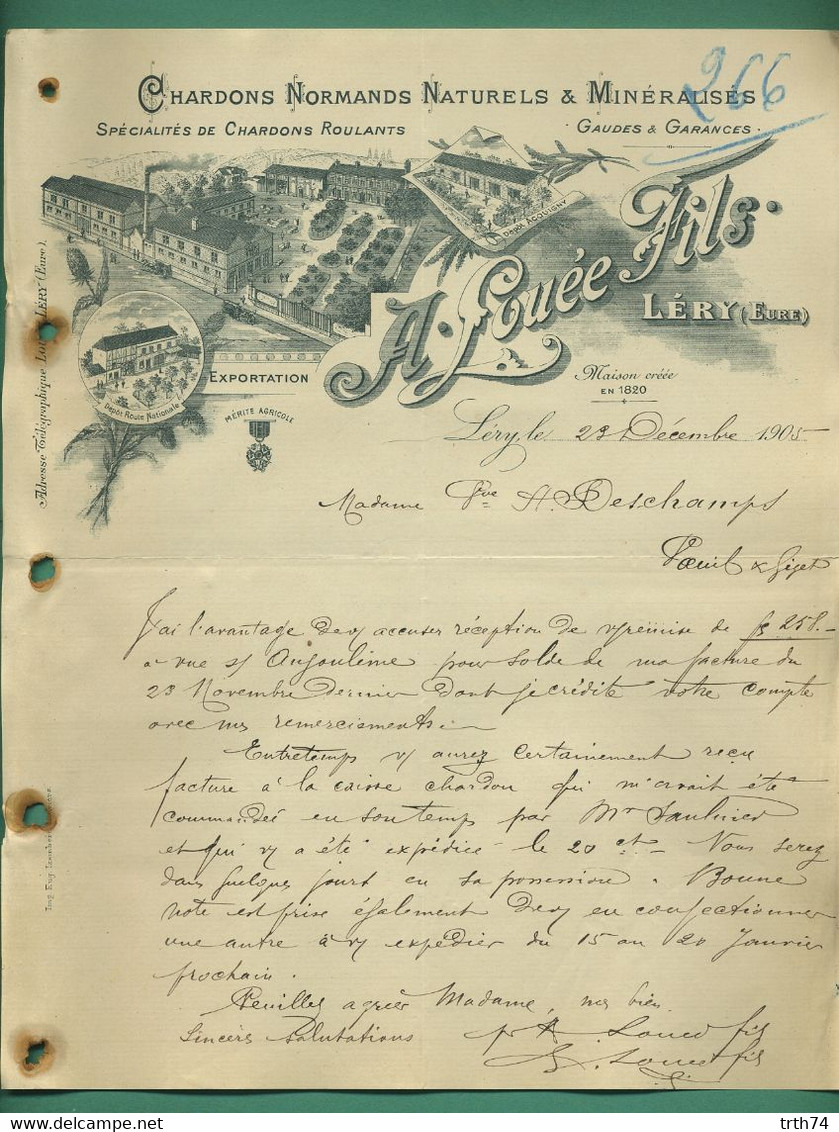 266
CHARDONS NORMANDS NATURELS & MINÉRALISÉS
SPÉCIALITÉS DE CHARDONS ROULANTS
GAUDES & GARANCES.
Dépôt ACQUIGNY
A. Louée Fils.
LÉRY (EURE)
Adresse Télégraphique LÉRY (Eure).
Dépôt Route Nationale
EXPORTATION
Maison créée
EN 1820
MÉRITE AGRICOLE
Léry, le 23 Décembre 1905
Madame Vve H. Deschamps
Voeuil & Giget
J'ai l'avantage de v/ accuser réception de v/ remise de f 258.-
à vue s/ Angoulême pour solde de ma facture du
23 Novembre dernier dont je crédite votre compte
avec mes remerciements.-
Entretemps v/ aurez certainement reçu
facture à la caisse chardon qui m'avait été
commandée en son temps par Mr Saulnier
et qui v/ a été expédiée le 20 ct - Vous serez
dans quelques jours en sa possession. Bonne
note est prise également de v/ en confectionner
une autre à v/ expédier du 15 au 20 Janvier
prochain.
Veuillez agréer Madame, mes bien
sincères salutations
pr A. Louée fils
Louée fils
trth74